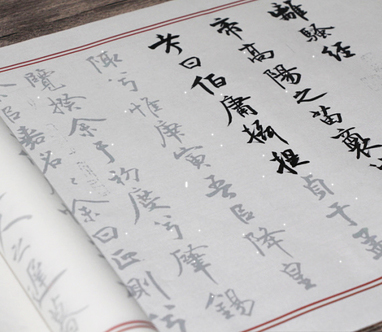 離騷經
帝高陽之苗裔
考曰伯庸攝提貞于孟
陬兮惟庚寅吾㠯降皇
覽揆余于初度兮肇錫
余㠯嘉名〻余曰正則兮
之遲暮